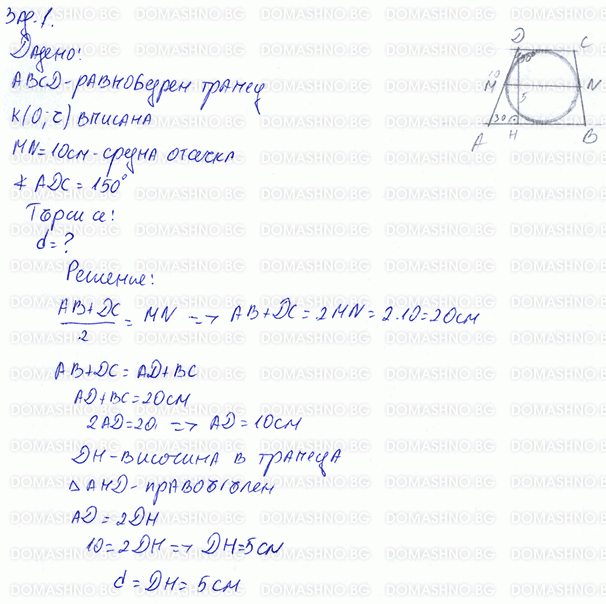 Зад. 1.
Дадено:
ABCD - равнобедрен трапец
K(O, r) вписана
MN = 10 см - средна отсечка
∢ ADC = 150°
Търси се:
d = ?
Решение:
(AB+DC)/2 = MN => AB+DC = 2MN = 2.10 = 20 см
AB+DC = AD+BC
AD+BC = 20 см
2AD = 20 => AD = 10 см
DH - височина в трапеца
△ AHD - правоъгълен
AD = 2DH
10 = 2DH => DH = 5 см
d = DH = 5 см
D C
150°
10
M N
5
30
A H B
DOMASHNO.BG